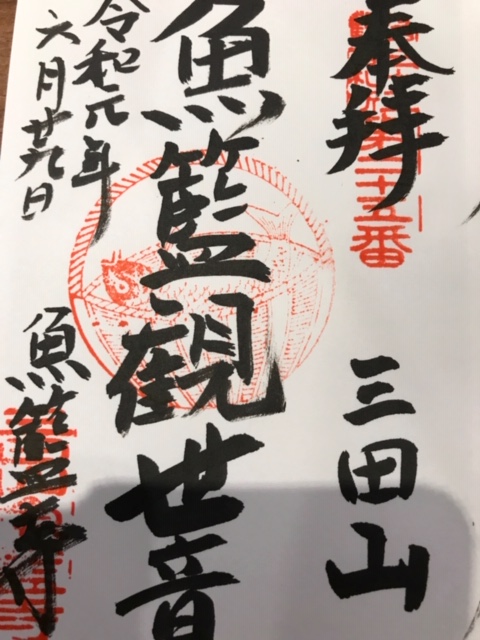 奉拝
二十五番
三田山
魚籃觀世音
令和元年
六月廿九日
魚籃寺